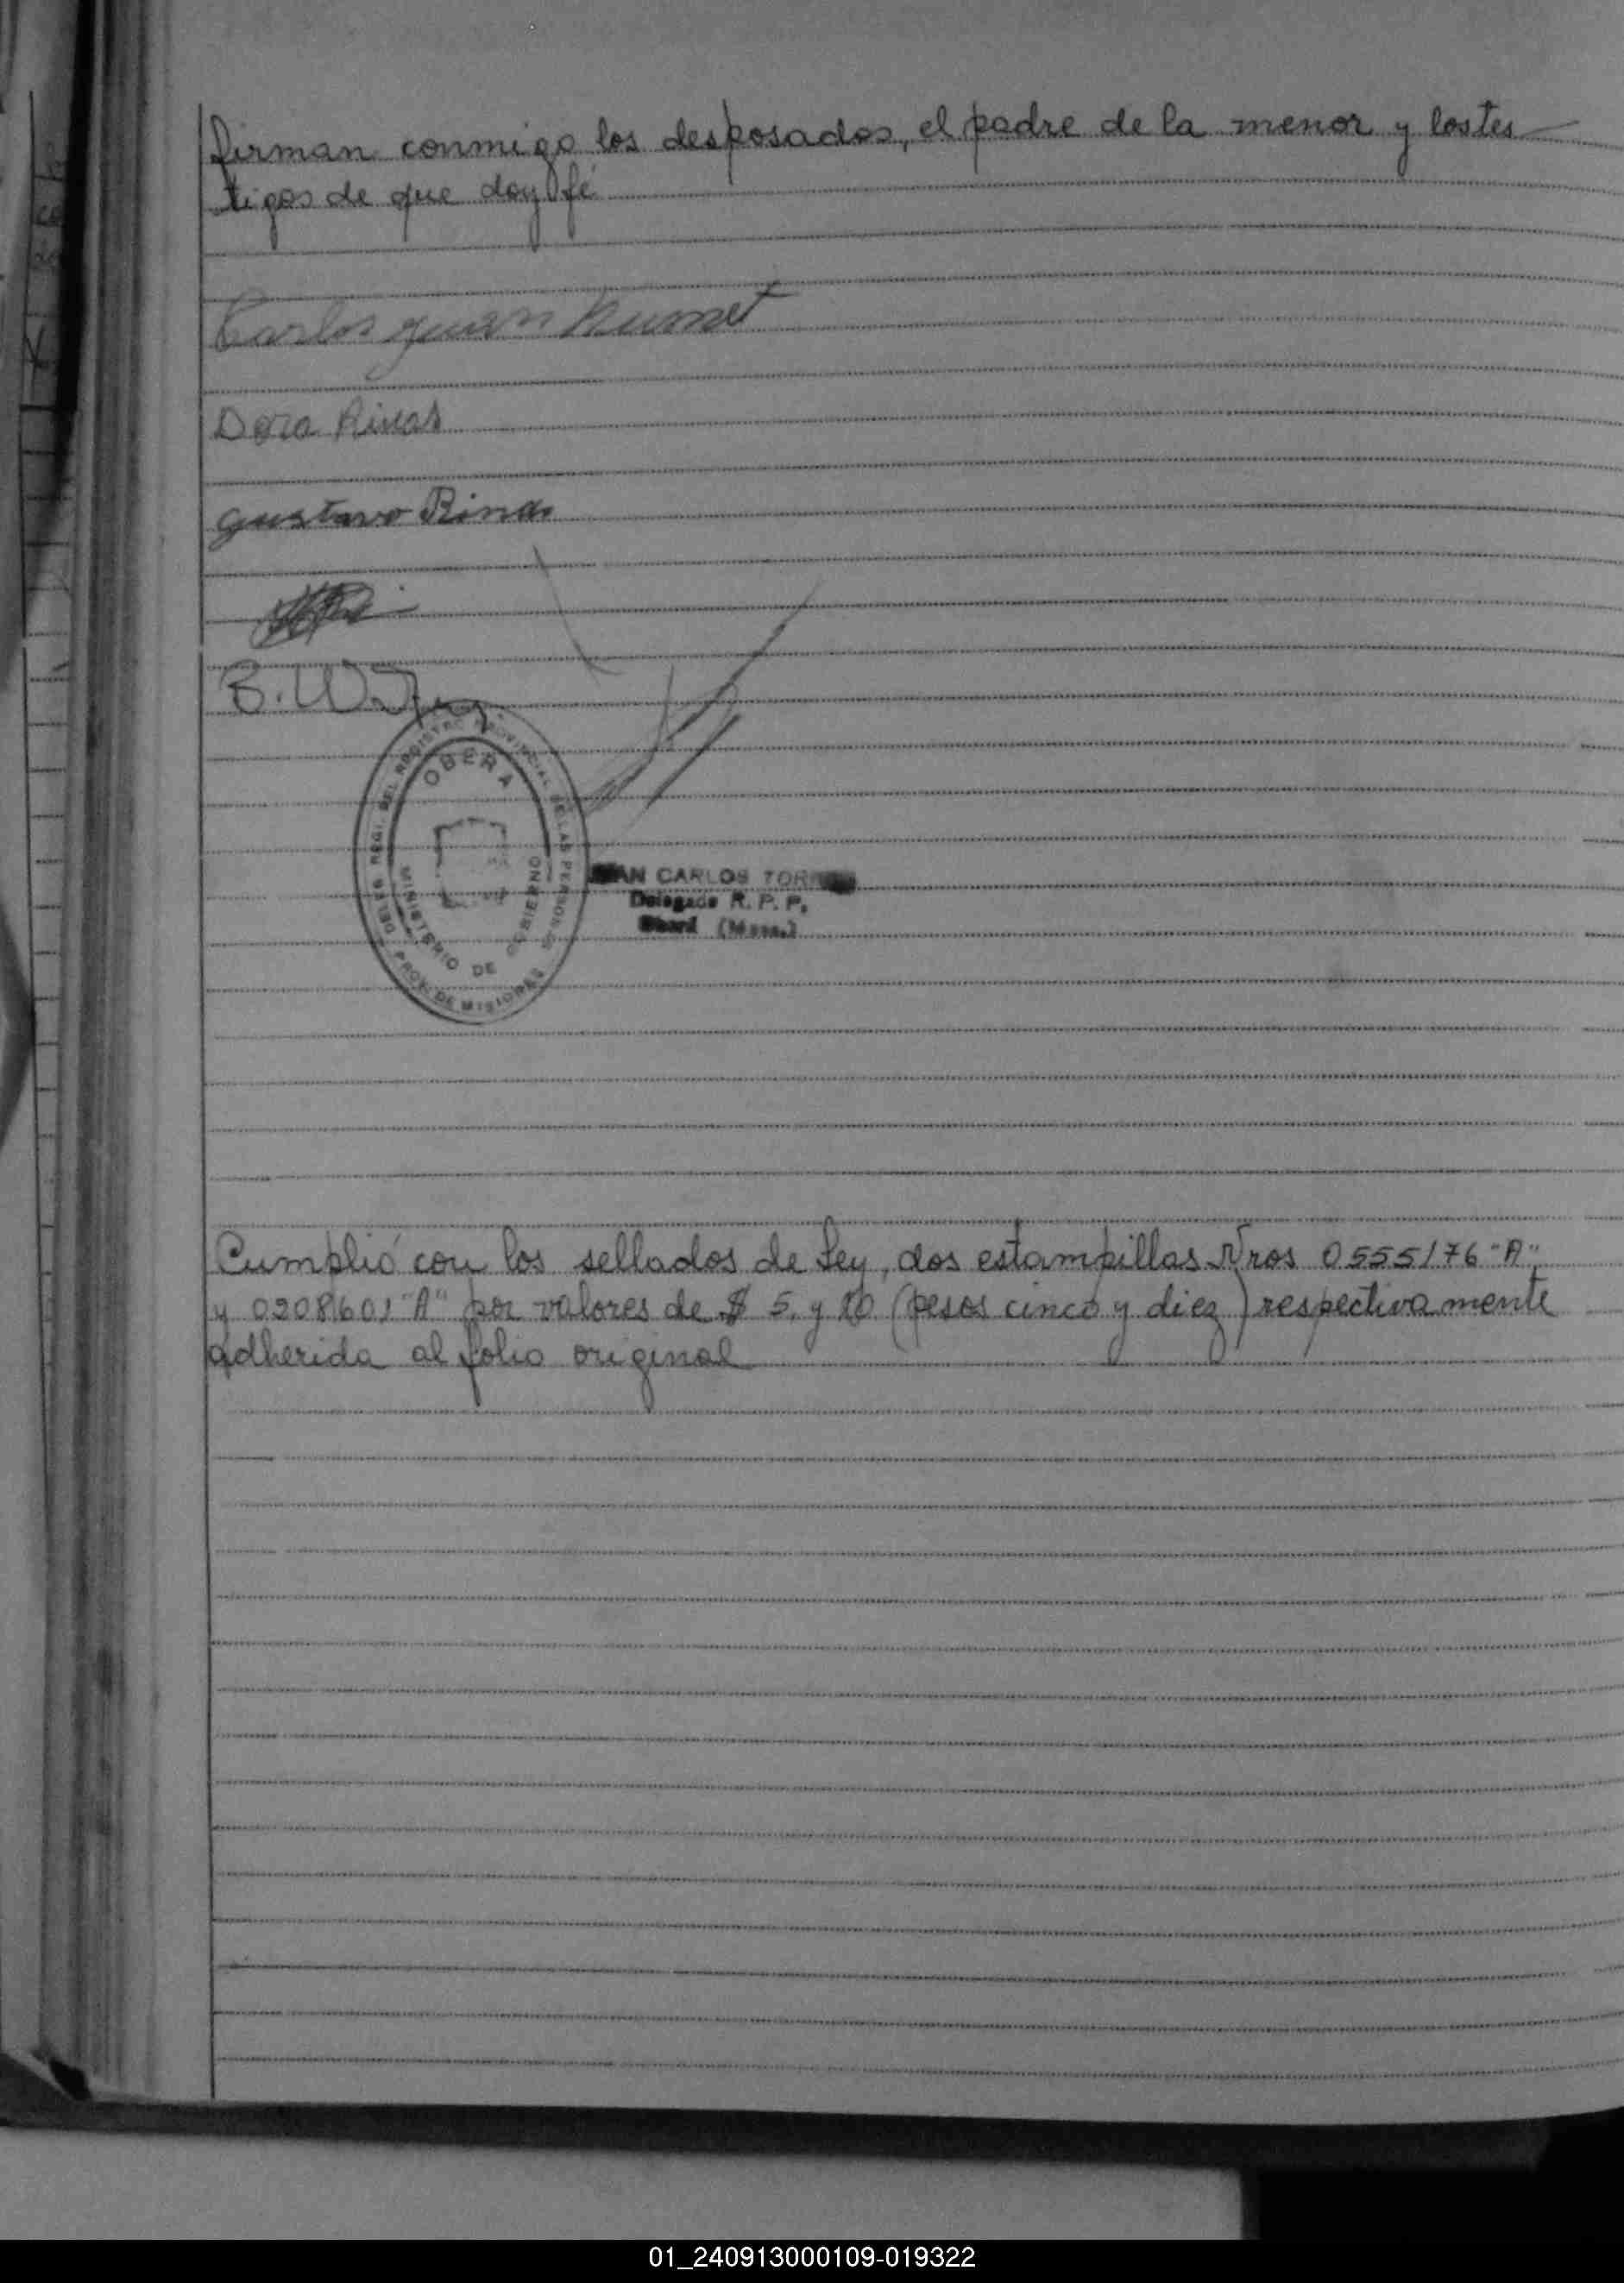 firman conmigo los desposados, el padre de la menor y los tes
tigos de que doy fé
Carlos Juan
Dora Rivas
Gustavo
B. W.
DELEG. REGI. DEL REGISTRO PROVINCIAL DE LAS PERSONAS
OBERA
MINISTERIO DE GOBIERNO
PROV. DE MISIONES
AN CARLOS TORR
Delegado R. P. P.
(Mnes.)
Cumplió con los sellados de Ley, dos estampillas Nros 0555176 "A"
y 0208601 "A" por valores de $ 5. y 10 (pesos cinco y diez) respectivamente
adherida al folio original
01_240913000109-019322